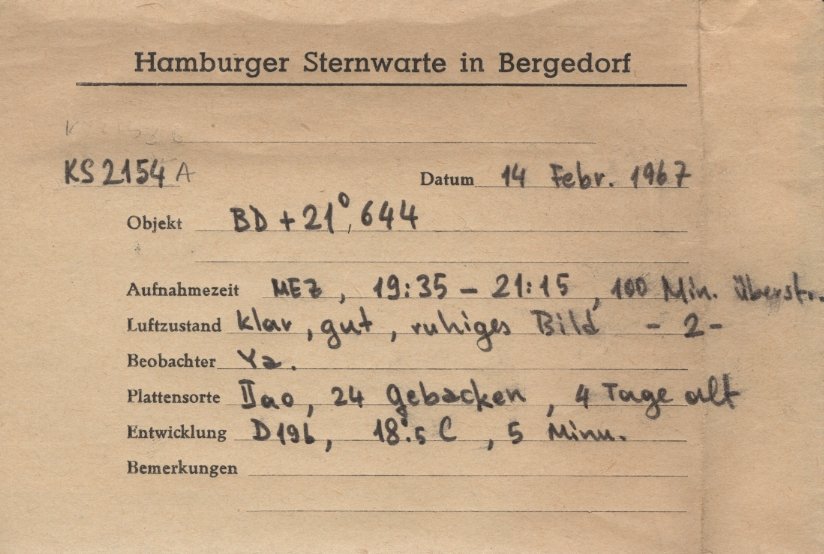 Hamburger Sternwarte in Bergedorf
KS 2154 A
Datum 14 Febr. 1967
Objekt BD + 21°, 644
Aufnahmezeit MEZ, 19:35 - 21:15, 100 Min. überstr.
Luftzustand klar, gut, ruhiges Bild - 2 -
Beobachter Ya.
Plattensorte IIao, 24 gebacken, 4 Tage alt
Entwicklung D19b, 18°.5 C, 5 Minu.
Bemerkungen